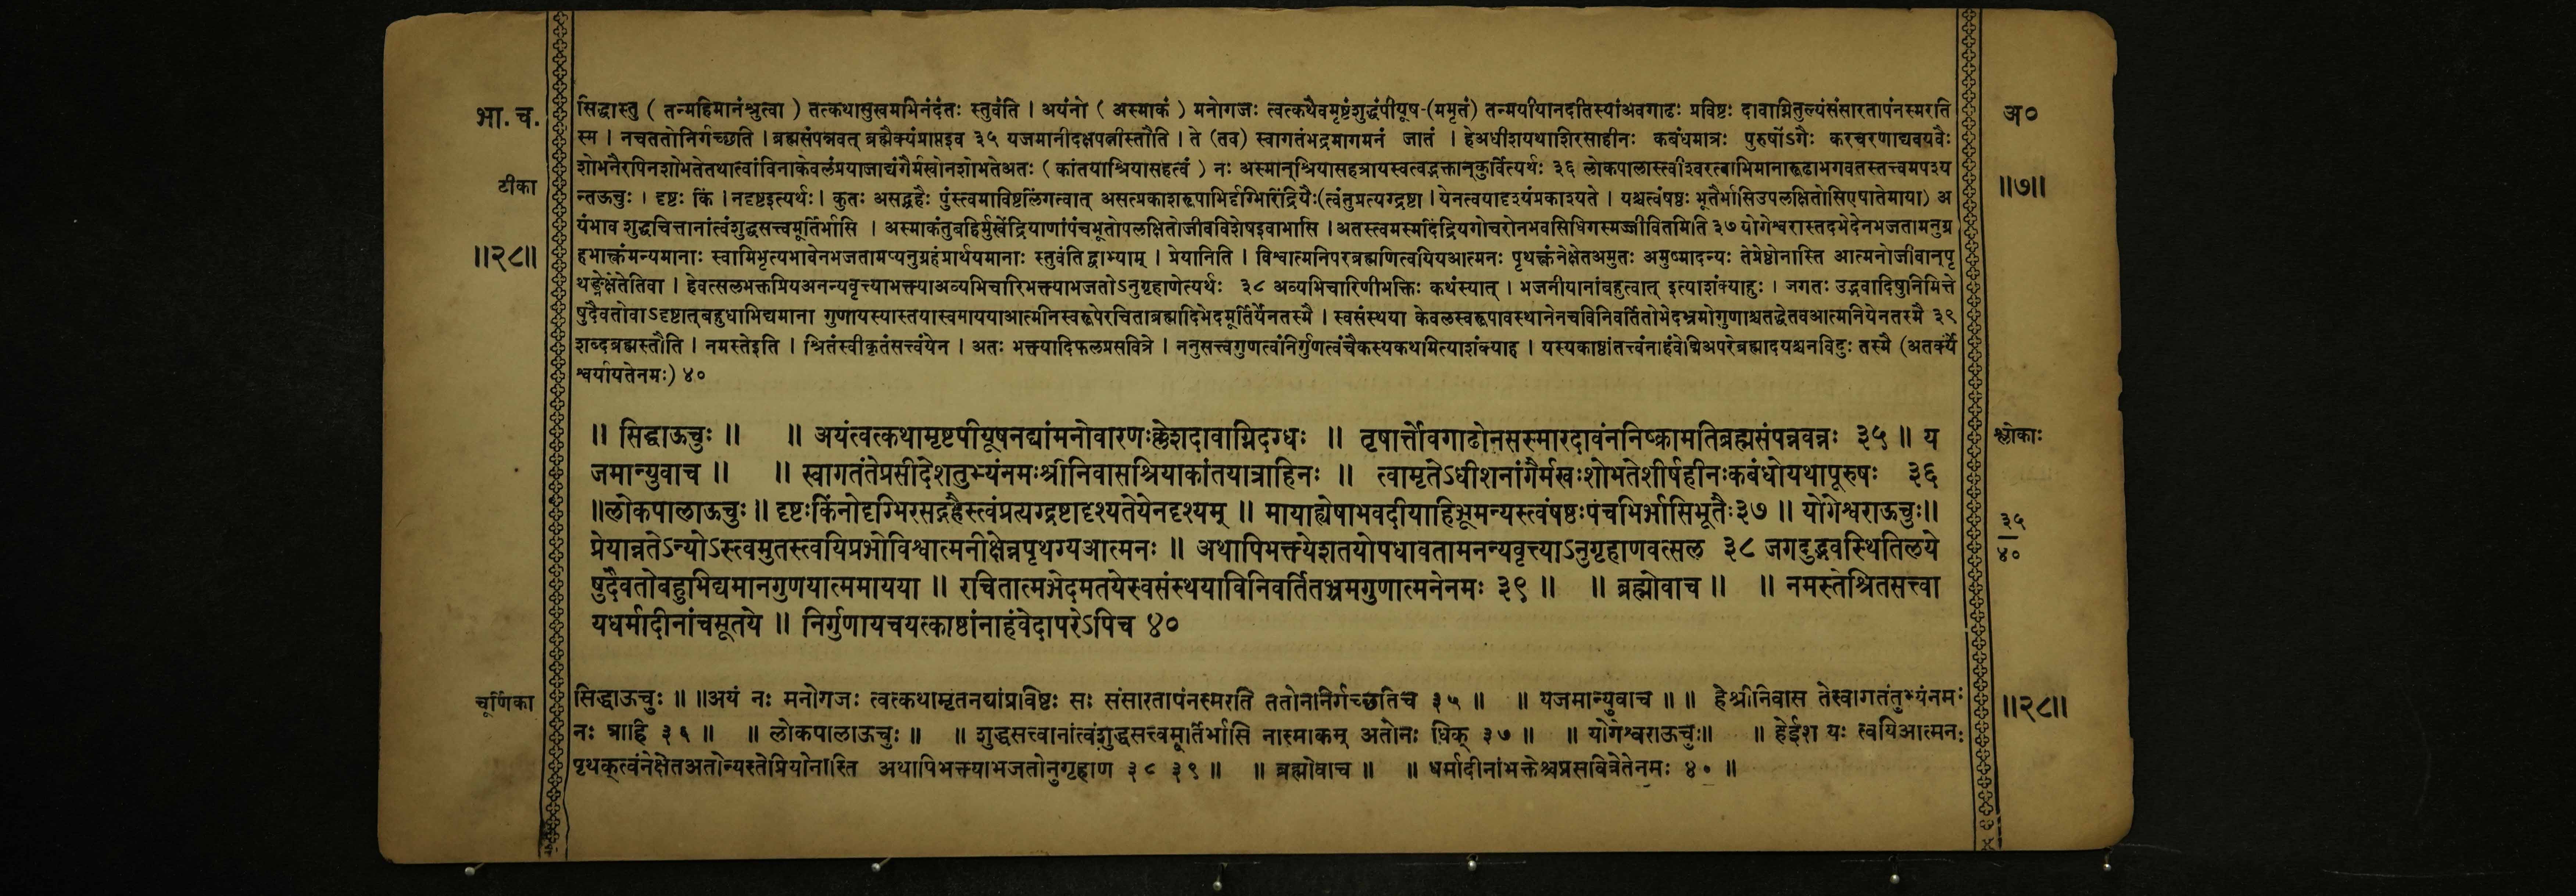 भा. च.
टीका
॥२८॥
सिद्धास्तु ( तन्महिमानंश्रुत्वा ) तत्कथासुखमभिनंदंतः स्तुवंति । अयंनो ( अस्माकं ) मनोगजः त्वत्कथैवमृष्टंशुद्धंपीयूष-(ममृतं) तन्मयीयानदीतिस्यांअवगाढः प्रविष्टः दावाग्नितुल्यंसंसारतापंनस्मरति
स्म । नचततोनिर्गच्छति । ब्रह्मसंपन्नवत् ब्रह्मैक्यंप्राप्तइव ३५ यजमानीदक्षपत्नीस्तौति । ते (तव) स्वागतंभद्रमागमनं जातं । हेअधीशयथाशिरसाहीनः कबंधमात्रः पुरुषोंऽगैः करचरणाद्यवयवैः
शोभनैरपिनशोभतेतथात्वांविनाकेवलंप्रयाजाद्यंगैर्मखोनशोभतेअतः ( कांतयाश्रियासहत्वं ) नः अस्मान्श्रियासहत्रायस्वत्वद्भक्तान्कुर्वित्यर्थः ३६ लोकपालास्त्वीश्वरत्वाभिमानारूढाभगवतस्तत्त्वमपश्य
न्तऊचुः । दृष्टः किं । नदृष्टइत्यर्थः । कुतः असद्ग्रहैः पुंस्त्वमाविष्टलिंगत्वात् असत्प्रकाशरूपाभिर्दृग्भिरिंद्रियैः(त्वंतुप्रत्यग्द्रष्टा । येनत्वयादृश्यंप्रकाश्यते । यश्चत्वंषष्ठः भूतैर्भासिउपलक्षितोसिएषातेमाया) अ
यंभाव शुद्धचित्तानांत्वंशुद्धसत्त्वमूर्तिर्भासि । अस्माकंतुबहिर्मुखेंद्रियाणांपंचभूतोपलक्षितोजीवविशेषइवाभासि । अतस्त्वमस्मदिंद्रियगोचरोनभवसिधिगस्मज्जीवितमिति ३७ योगेश्वरास्तदभेदेनभजतामनुग्र
हभाक्त्वंमन्यमानाः स्वामिभृत्यभावेनभजतामप्यनुग्रहंप्रार्थयमानाः स्तुवंति द्वाभ्याम् । प्रेयानिति । विश्वात्मनिपरब्रह्मणित्वयियआत्मनः पृथक्त्वंनेक्षेतअमुतः अमुष्मादन्यः तेप्रेष्ठोनास्ति आत्मनोजीवान्पृ
थङ्नेक्षंतेतिवा । हेवत्सलभक्तप्रियअनन्यवृत्त्याभक्त्याअव्यभिचारिभक्त्याभजतोऽनुगृहाणेत्यर्थः ३८ अव्यभिचारिणीभक्तिः कथंस्यात् । भजनीयानांबहुत्वात् इत्याशंक्याहुः । जगतः उद्भवादिषुनिमित्ते
षुदैवतोवाऽदृष्टात्बहुधाभिद्यमाना गुणायस्यास्तयास्वमाययाआत्मनिस्वरूपेरचिताब्रह्मादिभेदमूर्तिर्येनतस्मै । स्वसंस्थया केवलस्वरूपावस्थानेनचविनिवर्तितोभेदभ्रमोगुणाश्चतद्धेतवआत्मनियेनतस्मै ३९
शब्दब्रह्मस्तौति । नमस्तेइति । श्रितंस्वीकृतंसत्त्वंयेन । अतः भक्त्यादिफलप्रसवित्रे । ननुसत्त्वगुणत्वंनिर्गुणत्वंचैकस्यकथमित्याशंक्याह । यस्यकाष्ठांतत्त्वंनाहंवेद्मिअपरेब्रह्मादयश्चनविदुः तस्मै (अतर्क्यै
श्वर्यायतेनमः) ४०
॥ सिद्धाऊचुः ॥ ॥ अयंत्वत्कथामृष्टपीयूषनद्यांमनोवारणःक्लेशदावाग्निदग्धः ॥ तृषार्त्तोवगाढोनसस्मारदावंननिष्क्रामतिब्रह्मसंपन्नवन्नः ३५ ॥ य
जमान्युवाच ॥ ॥ स्वागतंतेप्रसीदेशतुभ्यंनमःश्रीनिवासश्रियाकांतयात्राहिनः ॥ त्वामृतेऽधीशनांगैर्मखःशोभतेशीर्षहीनःकबंधोयथापूरुषः ३६
॥लोकपालाऊचुः ॥ दृष्टःकिंनोदृग्भिरसद्ग्रहैस्त्वंप्रत्यग्द्रष्टादृश्यतेयेनदृश्यम् ॥ मायाह्येषाभवदीयाहिभूमन्यस्त्वंषष्ठःपंचभिर्भासिभूतैः३७ ॥ योगेश्वराऊचुः॥
प्रेयान्नतेऽन्योऽस्त्वमुतस्त्वयिप्रभोविश्वात्मनीक्षेन्नपृथग्यआत्मनः ॥ अथापिभक्त्येशतयोपधावतामनन्यवृत्त्याऽनुगृहाणवत्सल ३८ जगदुद्भवस्थितिलये
षुदैवतोबहुभिद्यमानगुणयात्ममायया ॥ रचितात्मभेदमतयेस्वसंस्थयाविनिवर्तितभ्रमगुणात्मनेनमः ३९ ॥ ॥ ब्रह्मोवाच ॥ ॥ नमस्तेश्रितसत्त्वा
यधर्मादीनांचसूतये ॥ निर्गुणायचयत्काष्ठांनाहंवेदापरेऽपिच ४०
चूर्णिका
सिद्धाऊचुः ॥ ॥अयं नः मनोगजः त्वत्कथामृतनद्यांप्रविष्टः सः संसारतापंनस्मरति ततोननिर्गच्छतिच ३५ ॥ ॥ यजमान्युवाच ॥ ॥ हेश्रीनिवास तेस्वागतंतुभ्यंनमः
नः त्राहि ३६ ॥ ॥ लोकपालाऊचुः ॥ ॥ शुद्धसत्त्वानांत्वंशुद्धसत्त्वमूर्तिर्भासि नास्माकम् अतोनः धिक् ३७ ॥ ॥ योगेश्वराऊचुः॥ ॥ हेईश यः त्वयिआत्मनः
पृथक्त्वंनेक्षेतअतोन्यस्तेप्रियोनास्ति अथापिभक्त्याभजतोनुगृहाण ३८ ३९ ॥ ॥ ब्रह्मोवाच ॥ ॥ धर्मादीनांभक्तेश्चप्रसवित्रेतेनमः ४० ॥
अ०
॥७॥
श्लोकाः
३५
४०
॥२८॥